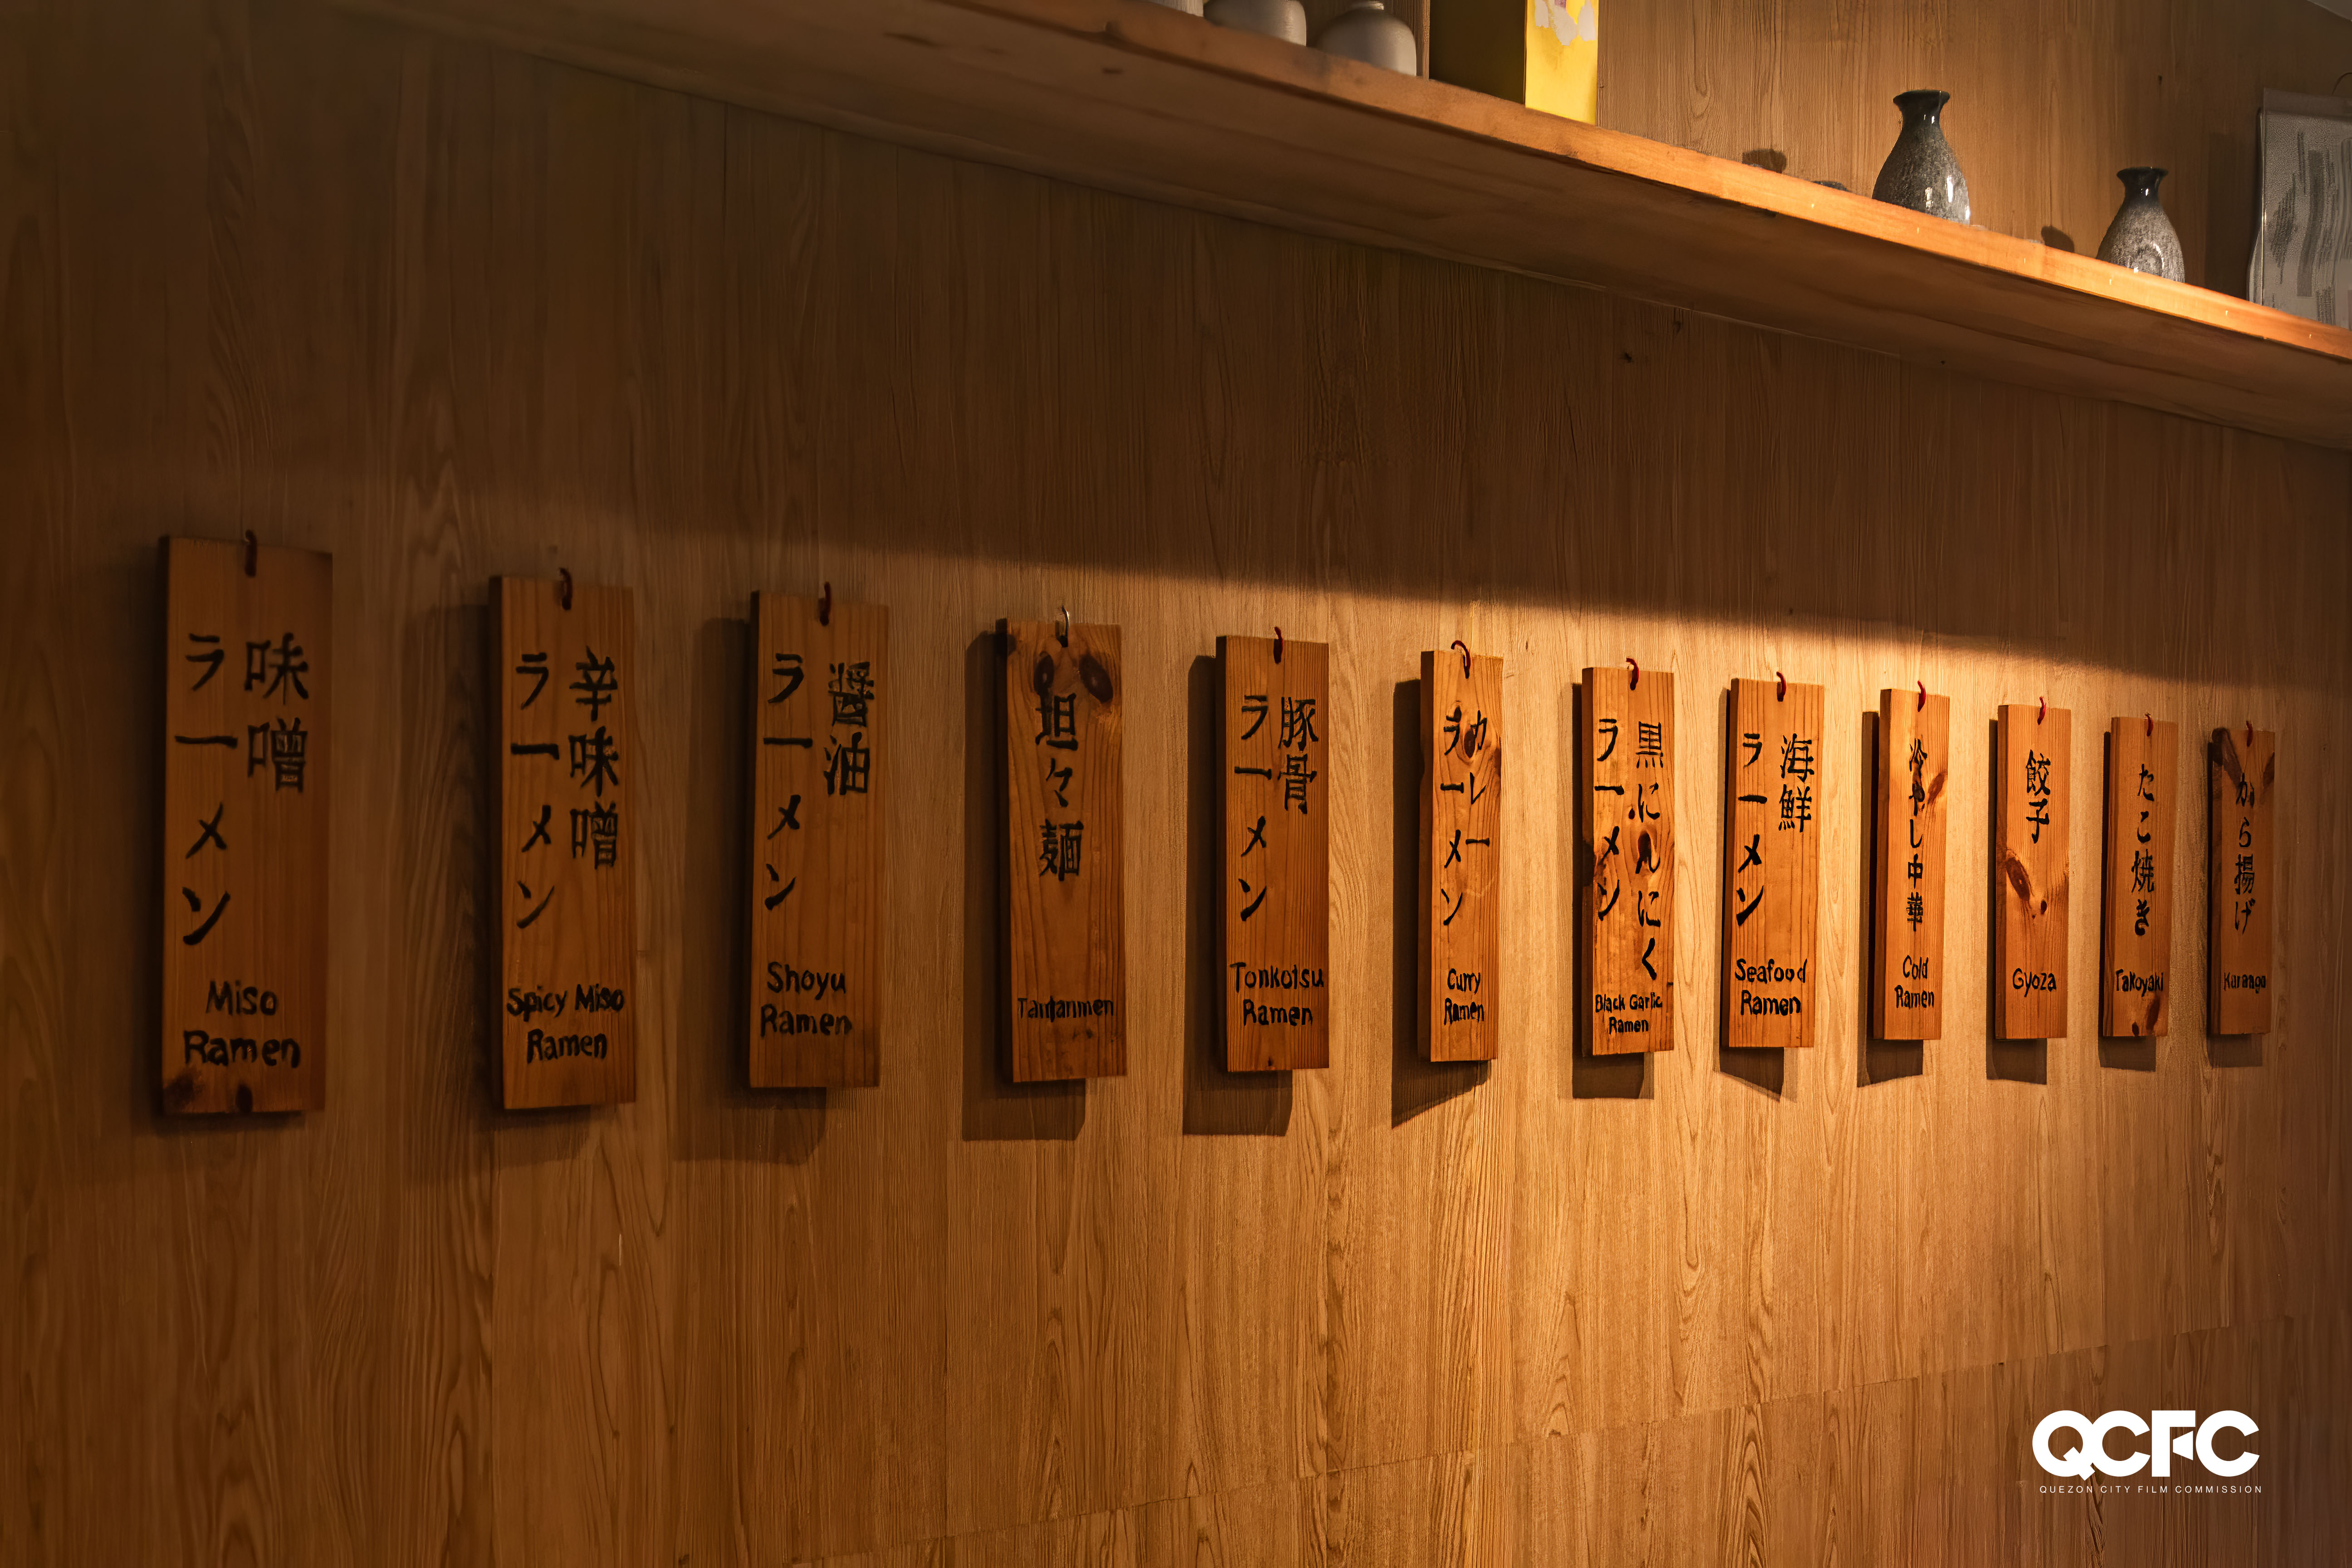 味噌
ラーメン
Miso
Ramen
辛味噌
ラーメン
Spicy Miso
Ramen
醤油
ラーメン
Shoyu
Ramen
坦々麺
Tantanmen
豚骨
ラーメン
Tonkotsu
Ramen
カレー
ラーメン
Curry
Ramen
黒にんにく
ラーメン
Black Garlic
Ramen
海鮮
ラーメン
Seafood
Ramen
冷やし中華
Cold
Ramen
餃子
Gyoza
たこ焼き
Takoyaki
から揚げ
Karaage
QCFC
QUEZON CITY FILM COMMISSION